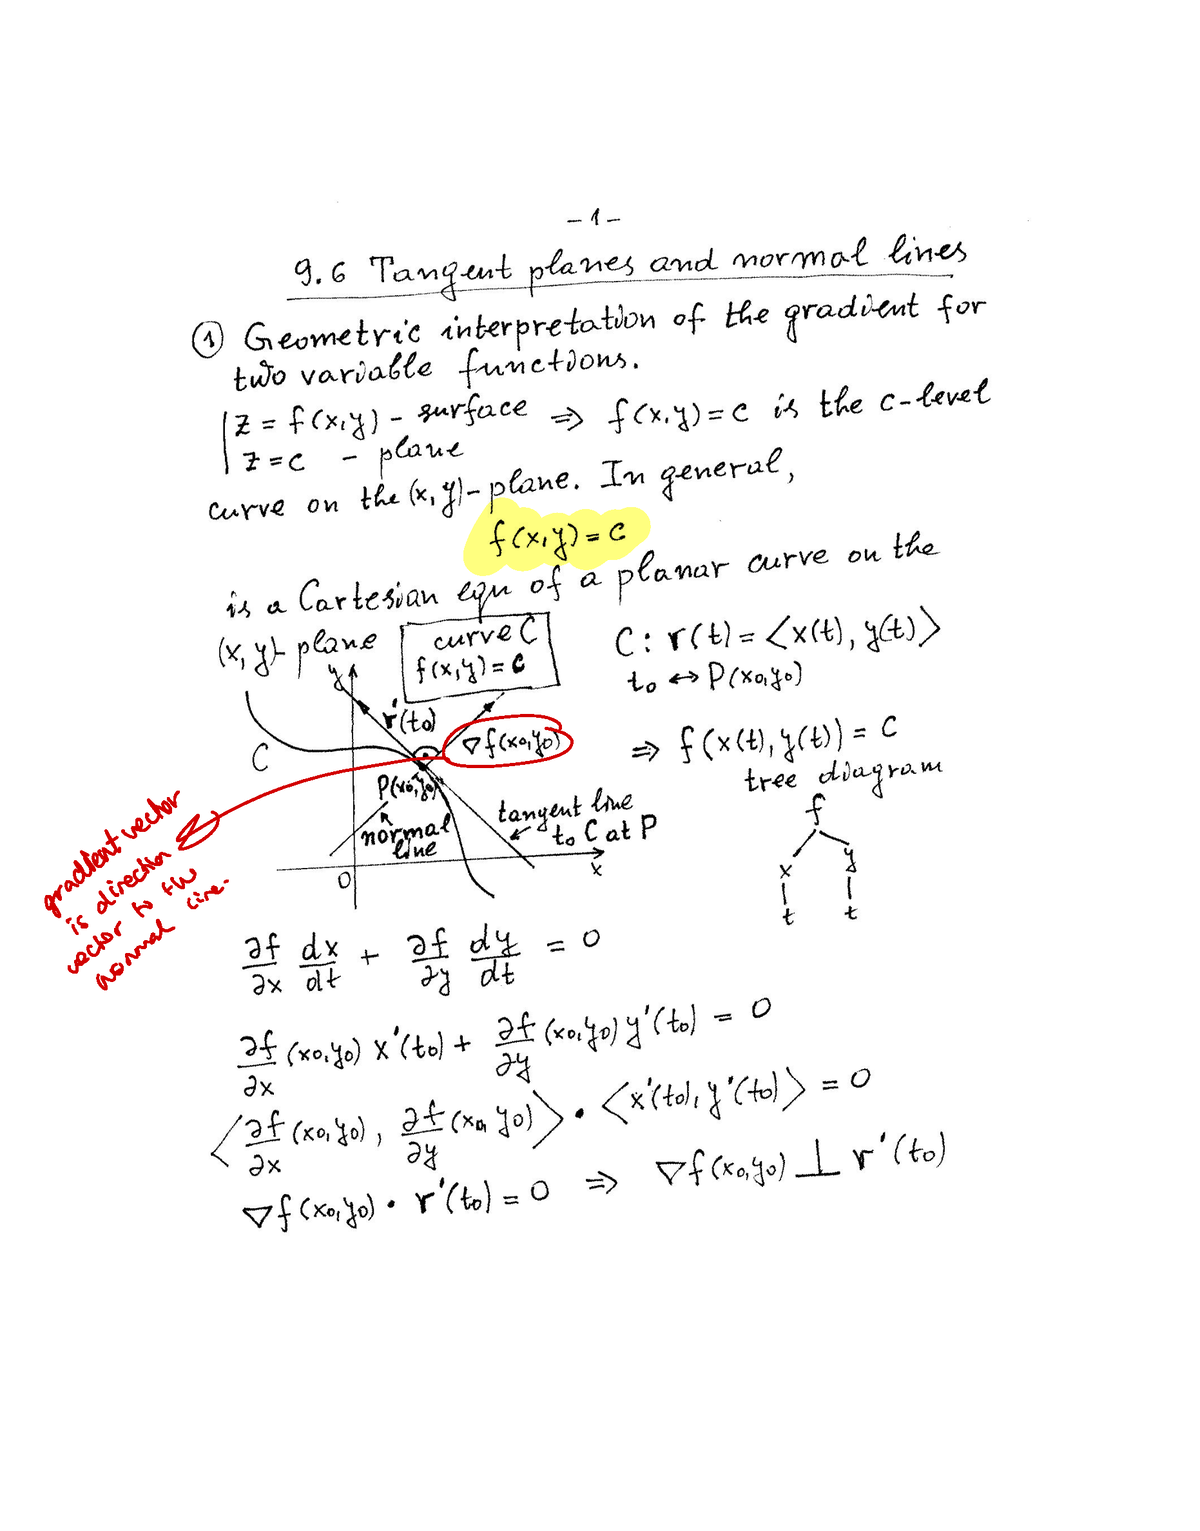 – 1 –
9.6 Tangent planes and normal lines
① Geometric interpretation of the gradient for
two variable functions.
z = f(x,y) – surface ⇒ f(x,y) = c is the c-level
z = c – plane
curve on the (x,y)-plane. In general,
f(x,y) = c
is a Cartesian equ of a planar curve on the
(x,y)-plane
curve C
f(x,y) = c
C: r(t) = <x(t), y(t)>
t₀ ↔ P(x₀,y₀)
y
r'(t₀)
∇f(x₀,y₀)
C
P(x₀,y₀)
normal
line
tangent line
to C at P
x
0
⇒ f(x(t), y(t)) = C
tree diagram
f
x y
t t
gradient vector
is direction
vector to the
normal line.
∂f/∂x dx/dt + ∂f/∂y dy/dt = 0
∂f/∂x (x₀,y₀) x'(t₀) + ∂f/∂y (x₀,y₀) y'(t₀) = 0
<∂f/∂x (x₀,y₀), ∂f/∂y (x₀,y₀)> • <x'(t₀), y'(t₀)> = 0
∇f(x₀,y₀) • r'(t₀) = 0 ⇒ ∇f(x₀,y₀) ⊥ r'(t₀)